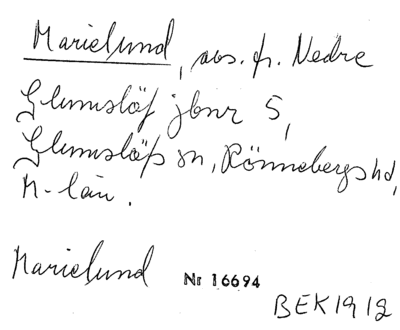 Marielund, avs. fr. Nedre
Glumslöf jbnr 5,
Glumslöfs sn, Rönnebergs hd,
M-län.
Marielund Nr 16694
BEK1912